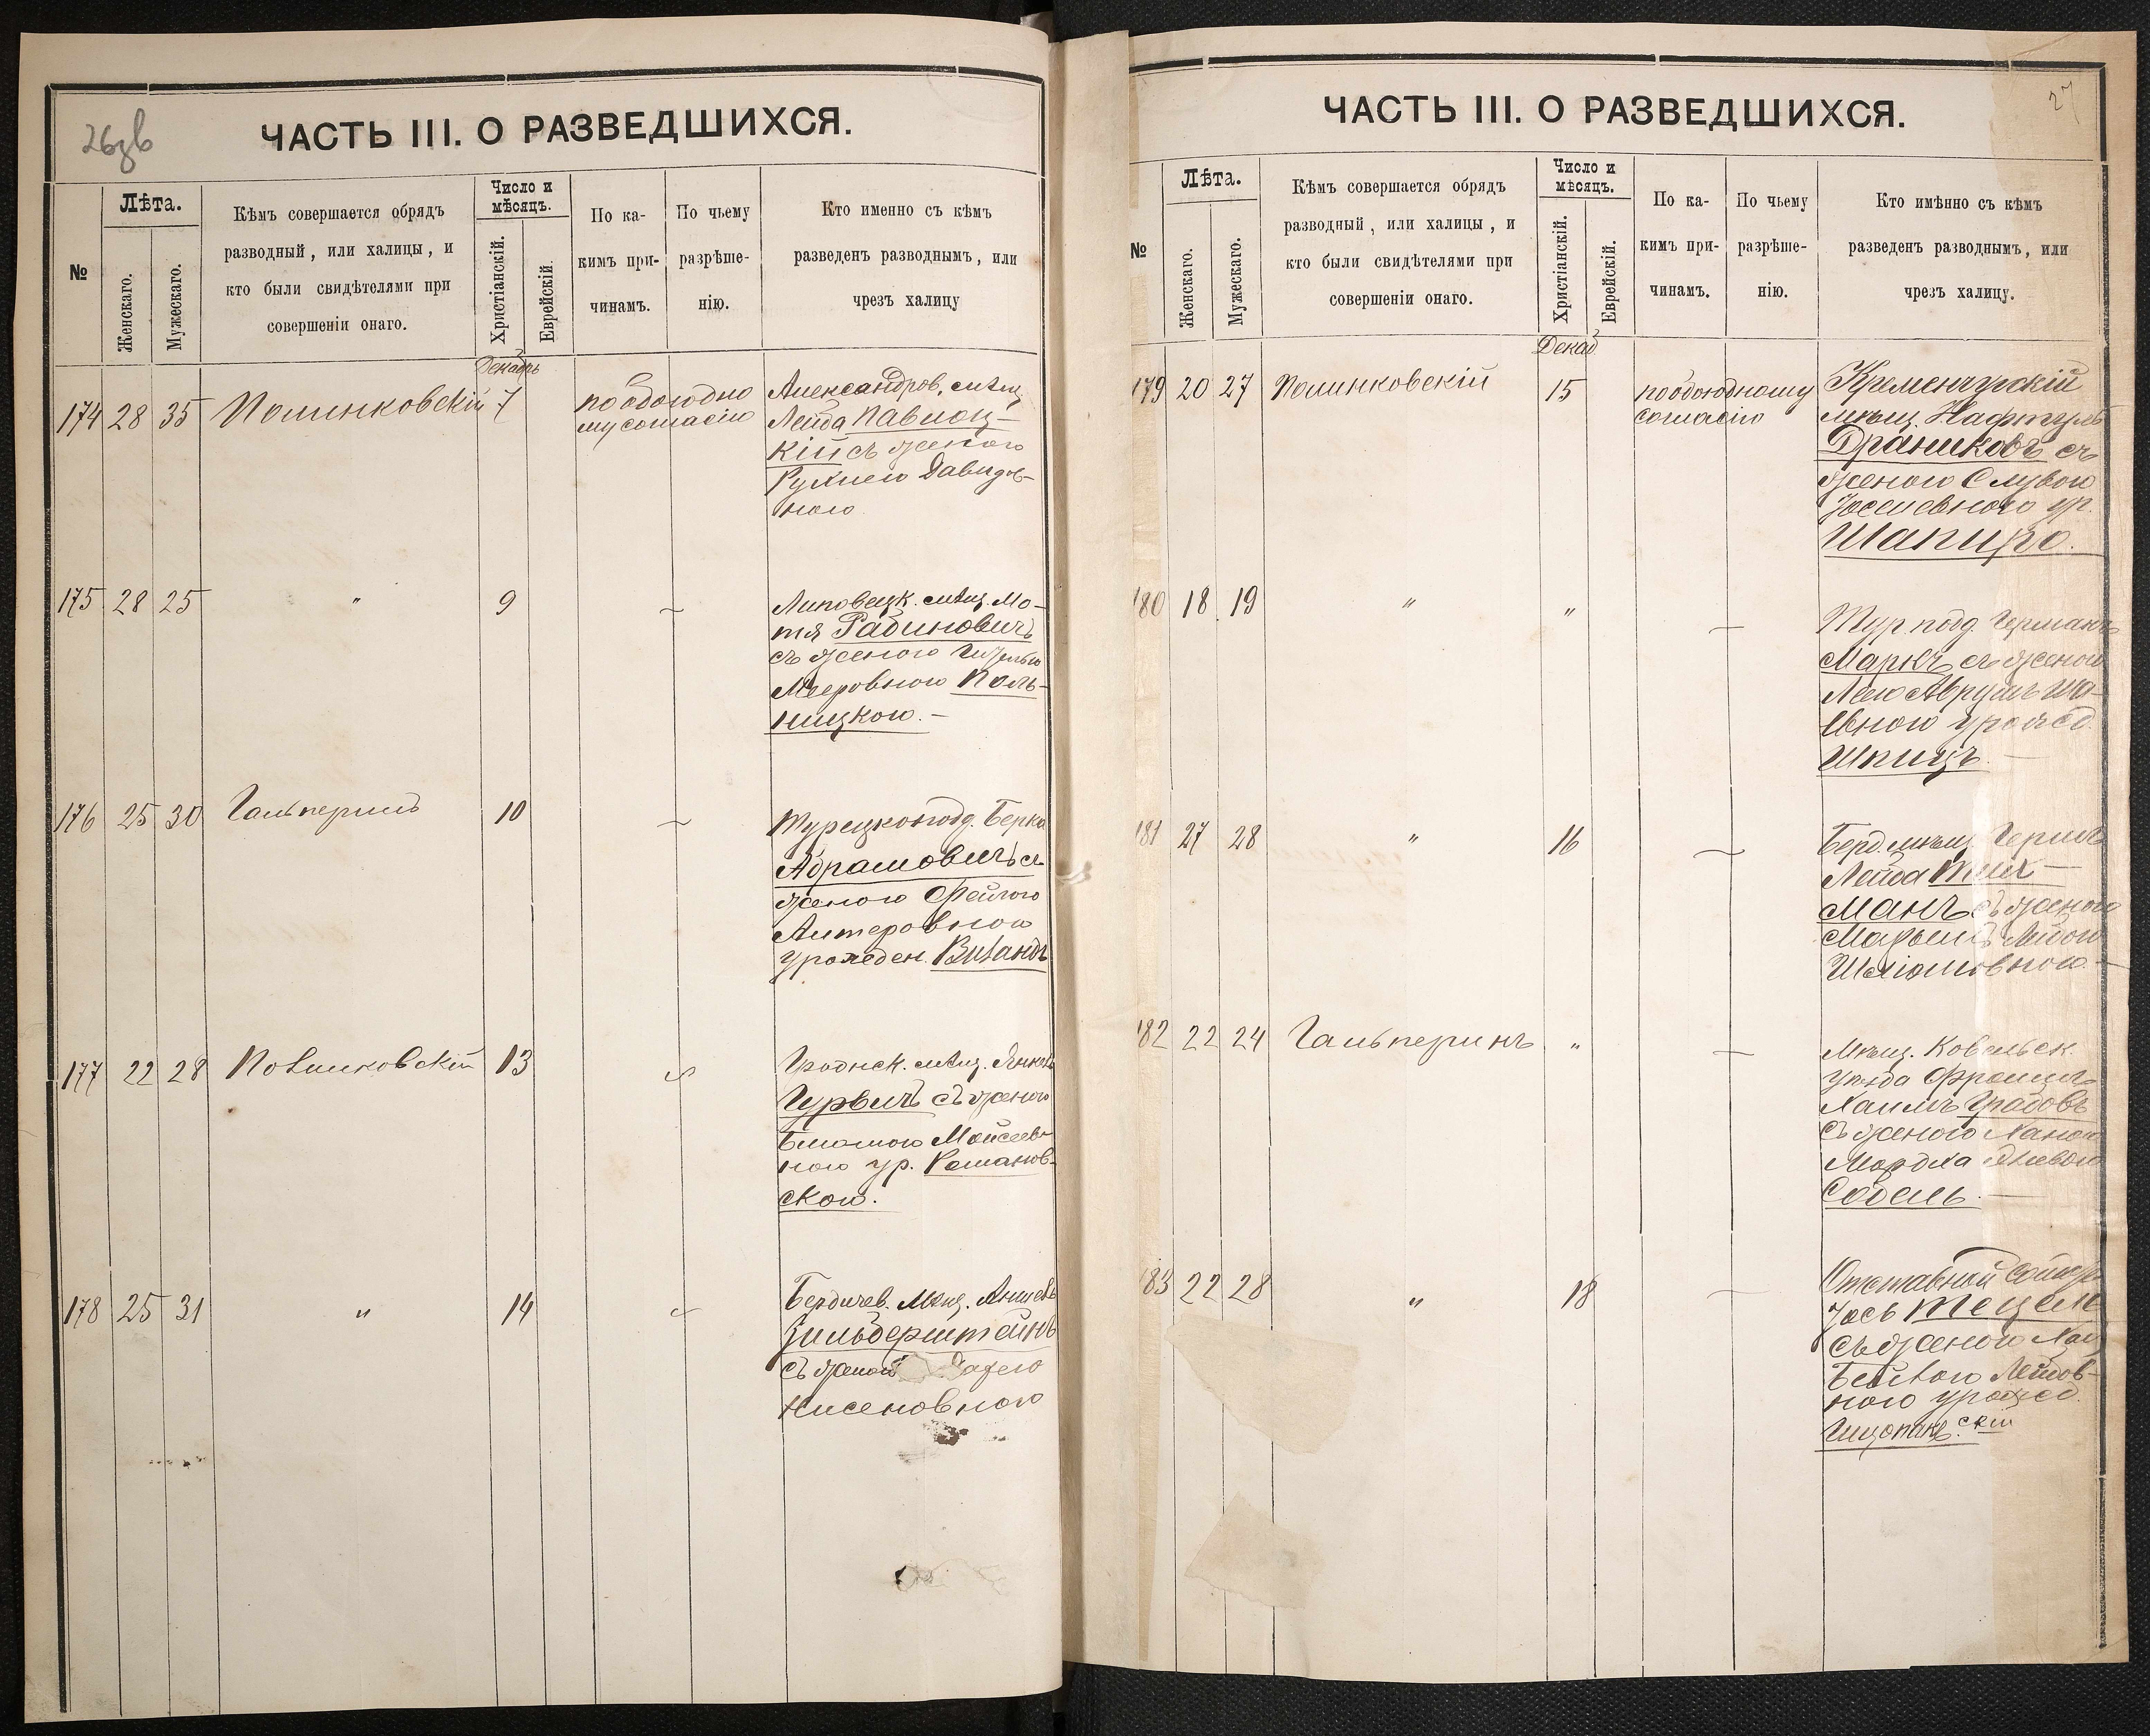 26зв
ЧАСТЬ III. О РАЗВЕДШИХСЯ.
№
Лѣта.
Женскаго.
Мужескаго.
Кѣмъ совершается обрядъ
разводный, или халицы, и
кто были свидѣтелями при
совершеніи онаго.
Число и
мѣсяцъ.
Христіанскій.
Еврейскій.
По ка-
кимъ при-
чинамъ.
По чьему
разрѣше-
нію.
Кто именно съ кѣмъ
разведенъ разводнымъ, или
чрезъ халицу
Декабрь
174 28 35 Полинковскій 7
по обоюдно
му согласію
Александров. мѣщ.
Лейба Павлоц-
кій съ женою
Рухлею Давидов-
ною
175 28 25 " 9 —
Липовецк. мѣщ. Мо-
тя Рабиновичъ
съ женою
Мееровною Поль-
ницкою. —
176 25 30 Гальперинъ 10 —
Турецкоподд. Берко
Абрамовичъ съ
женою Фейгою
Алтеровною
урожден. Визандъ
177 22 28 Полинковскій 13
Гроднск. мѣщ. Янкель
Гурвичъ съ женою
Блюмою Мойсеев-
ною ур. Романов-
скою.
178 25 31 " 14
Бердичев. мѣщ. Аншель
Зильберштейнъ
съ женою
Нисеновною
27
ЧАСТЬ III. О РАЗВЕДШИХСЯ.
№
Лѣта.
Женскаго.
Мужескаго.
Кѣмъ совершается обрядъ
разводный, или халицы, и
кто были свидѣтелями при
совершеніи онаго.
Число и
мѣсяцъ.
Христіанскій.
Еврейскій.
По ка-
кимъ при-
чинамъ.
По чьему
разрѣше-
нію.
Кто имѣнно съ кѣмъ
разведенъ разводнымъ, или
чрезъ халицу.
Декаб
179 20 27 Полинковскій 15
по обоюдному
согласію
Кременчугскій
мѣщ. Нафтуль
Драниковъ съ
женою Слувою
Іоселевною ур.
Шапиро.
180 18 19 " " —
Тур. подд. Германъ
Маркъ съ женою
Леею Аврумъ Ша-
евною урожд.
Шпицъ. —
181 27 28 " 16 —
Берд. мѣщ. Герш
Лейба Тих-
манъ съ женою
Марьемъ Лейбою
Шліомовною. —
182 22 24 Гальперинъ " —
Мѣщ. Ковельск.
уѣзда
Хаимъ Грабовъ
съ женою Ханою
Мордха
Собель. —
183 22 28 " 18 —
Отставный
Іось Тецель
съ женою Хая
Бейлою Лейбов-
ною урожд.